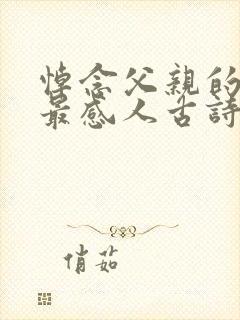 悼念父親的
最感人古詩
俏茹